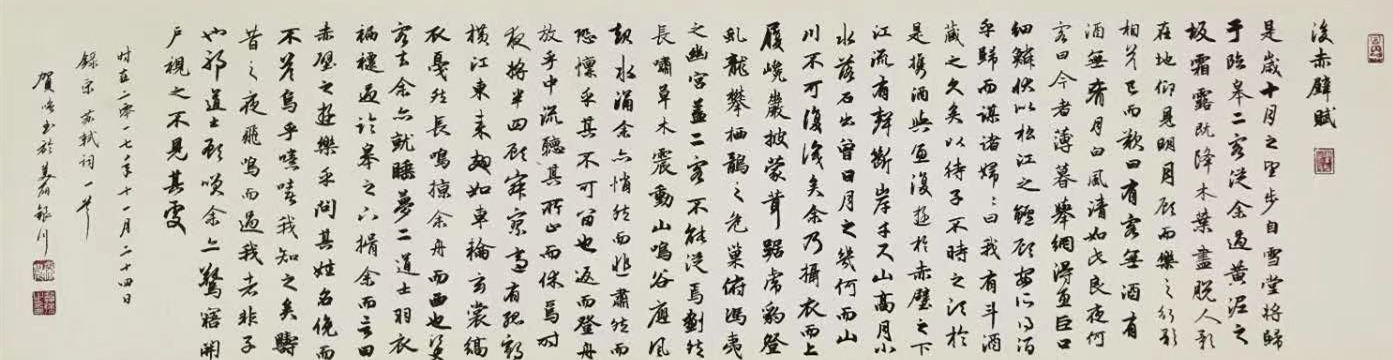 後赤壁賦
是歲十月之望步自雪堂將歸
于臨皋二客從余過黃泥之
坂霜露既降木葉盡脫人影
在地仰見明月顧而樂之行歌
相答已而歎曰有客無酒有
酒無肴月白風清如此良夜何
客曰今者薄暮舉網得魚巨口
細鱗狀似松江之鱸顧安所得酒
乎歸而謀諸婦〻曰我有斗酒
藏之久矣以待子不時之須於
是攜酒與魚復遊於赤壁之下
江流有聲斷岸千尺山高月小
水落石出曾日月之幾何而山
川不可復識矣余乃攝衣而上
履巉巖披蒙茸踞虎豹登
虬龍攀栖鶻之危巢俯馮夷
之幽宮蓋二客不能從焉劃然
長嘯草木震動山鳴谷應風
起水涌余亦悄然而悲肅然而
恐懍乎其不可留也返而登舟
放乎中流聽其所止而休焉時
夜將半四顧寂寥適有孤鶴
橫江東來翅如車輪玄裳縞
衣戛然長鳴掠余舟而西也須臾
客去余亦就睡夢二道士羽衣
蹁躚過臨皋之下揖余而言曰
赤壁之遊樂乎問其姓名俛而
不答烏乎噫嘻我知之矣疇
昔之夜飛鳴而過我者非子
也邪道士顧笑余亦驚寤開
戶視之不見其處
時在二零一七年十一月二十四日
錄宋蘇軾詞一首
賀書於美麗銀川